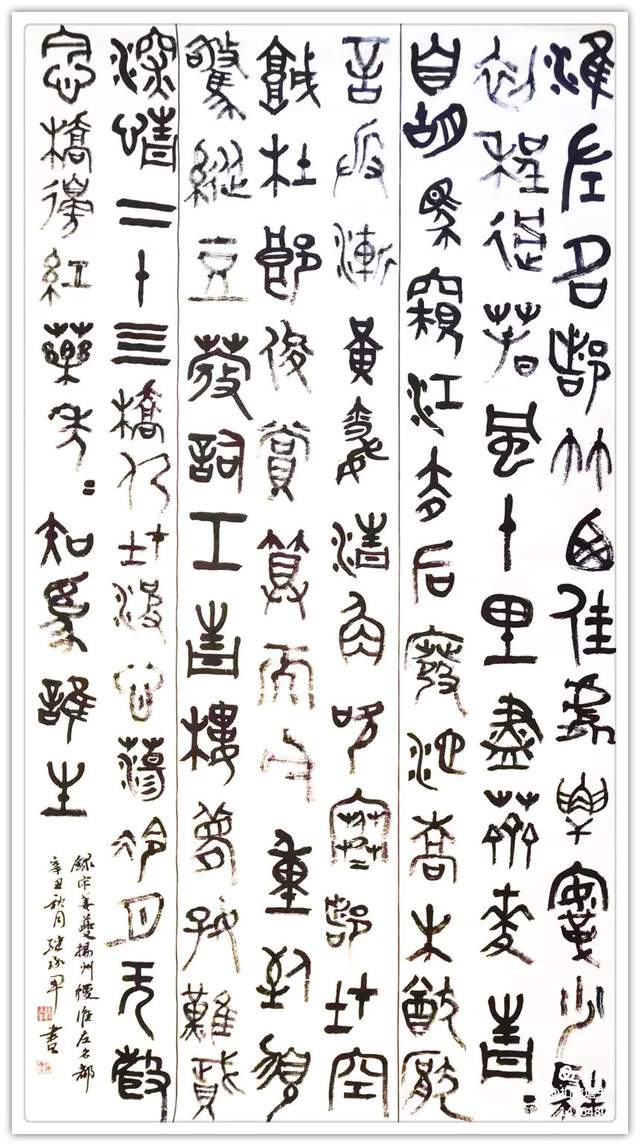 淮左名都竹西佳處解鞍少駐
初程過春風十里盡薺麥青〻
自胡馬窺江去后廢池喬木猶厭
言兵漸黃昏清角吹寒都在空
城杜郎俊賞算而今重到須
驚縱豆蔻詞工青樓夢好難賦
深情二十四橋仍在波心蕩冷月無聲
念橋邊紅藥年〻知為誰生
錄宋姜夔揚州慢淮左名都
辛丑秋月 書